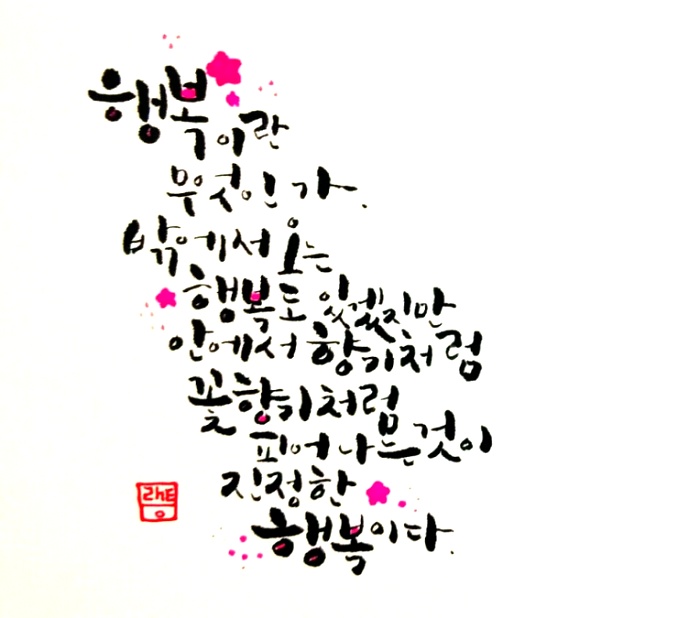 행복이란
무엇인가.
밖에서 오는
행복도 있겠지만
안에서 향기처럼
꽃향기처럼
피어나는것이
진정한
행복이다.